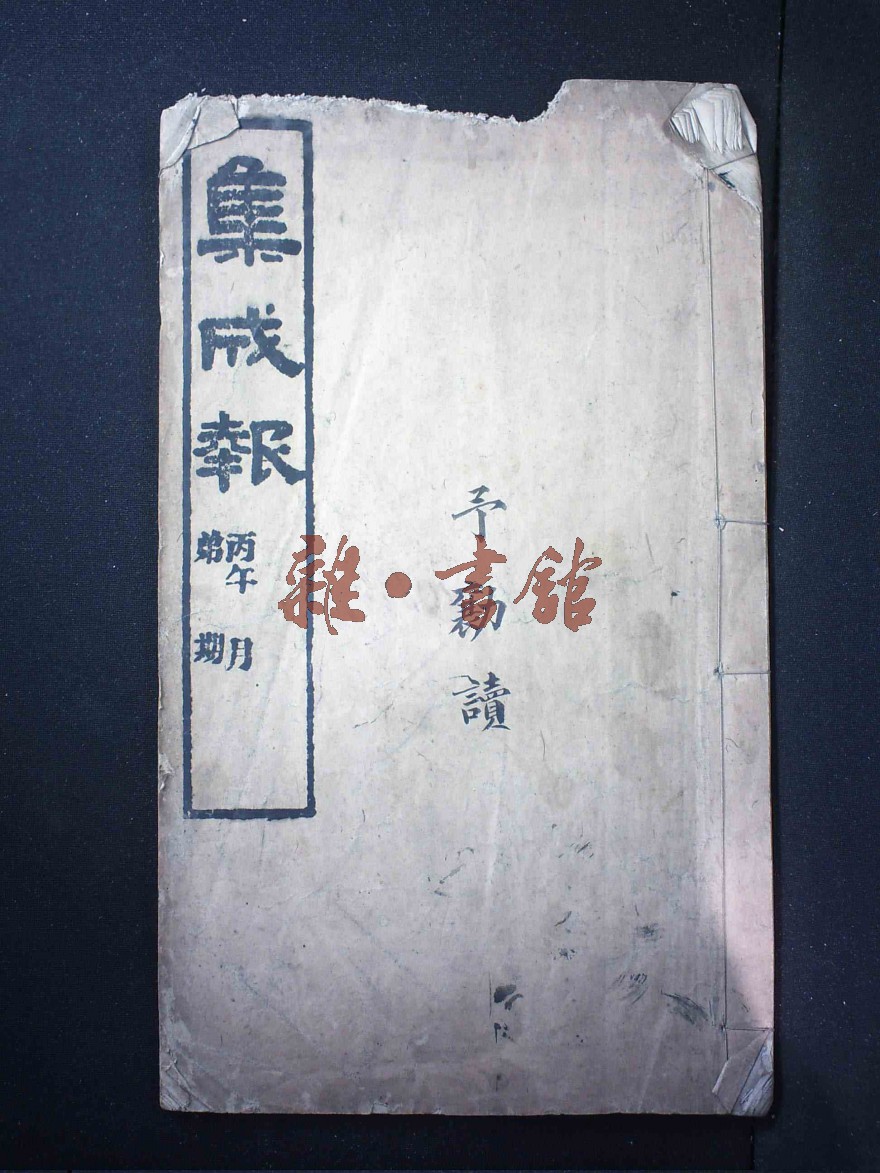 集成報
丙午 月
弟 期
予 讀
雜·書館